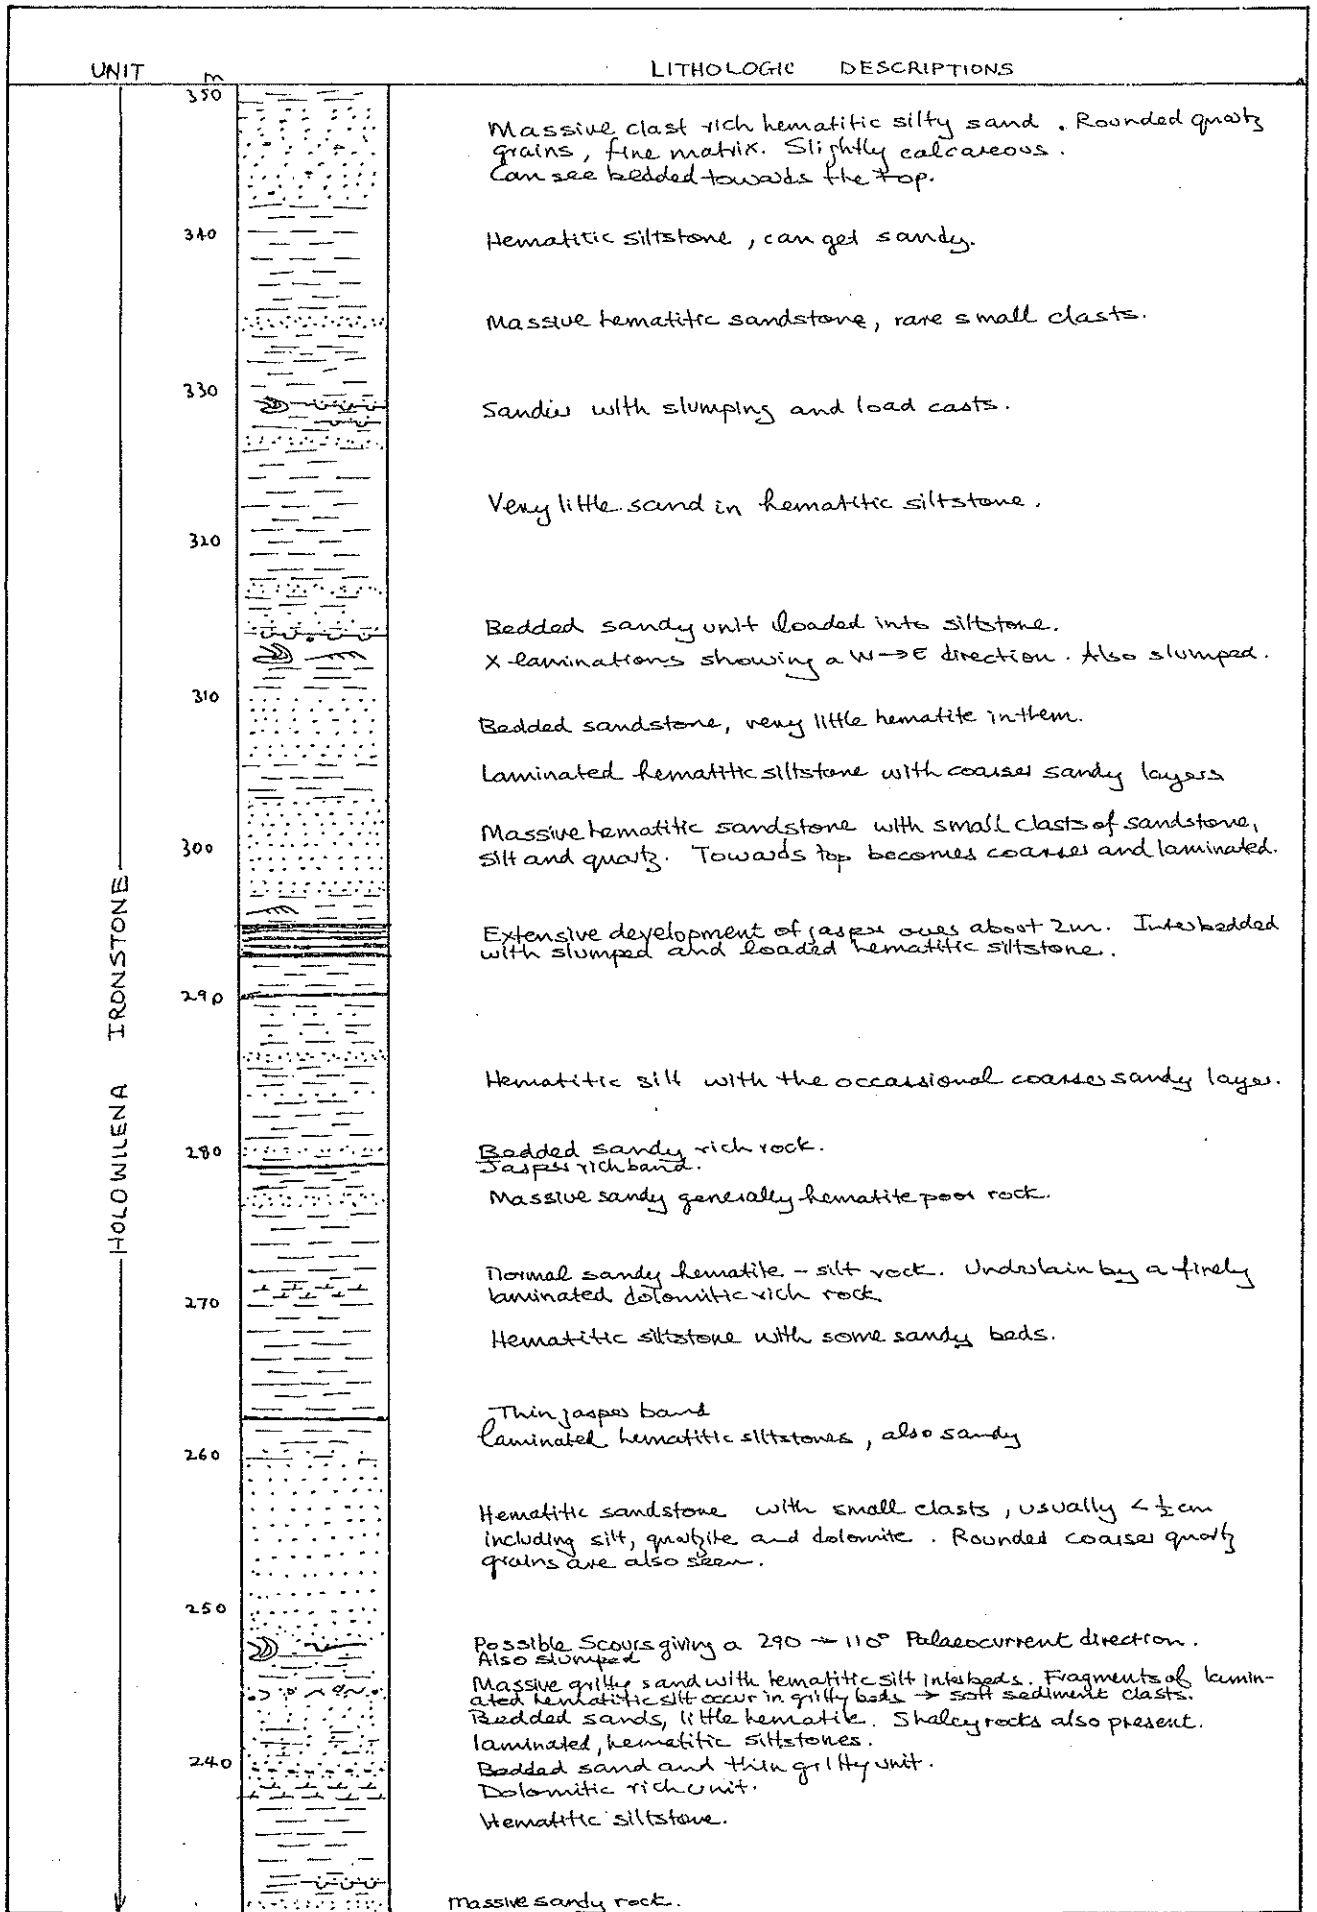 UNIT m LITHOLOGIC DESCRIPTIONS
350
Massive clast rich hematitic silty sand. Rounded quartz
grains, fine matrix. Slightly calcareous.
Can see bedded towards the top.
340
Hematitic siltstone, can get sandy.
Massive hematitic sandstone, rare small clasts.
330
Sandier with slumping and load casts.
Very little sand in hematitic siltstone.
320
Bedded sandy unit loaded into siltstone.
X-laminations showing a W→E direction. Also slumped.
310
Bedded sandstone, very little hematite in them.
Laminated hematitic siltstone with coarser sandy layers
Massive hematitic sandstone with small clasts of sandstone,
300
silt and quartz. Towards top becomes coarser and laminated.
Extensive development of jasper over about 2m. Interbedded
with slumped and loaded hematitic siltstone.
290
HOLOWILENA IRONSTONE
Hematitic silt with the occassional coarser sandy layer.
280
Bedded sandy rich rock.
Jasper rich band.
Massive sandy generally hematite poor rock.
Normal sandy hematite - silt rock. Underlain by a finely
laminated dolomitic rich rock
270
Hematitic siltstone with some sandy beds.
Thin jasper band
laminated hematitic siltstones, also sandy
260
Hematitic sandstone with small clasts, usually < ½ cm
including silt, quartzite and dolomite. Rounded coarser quartz
grains are also seen.
250
Possible Scours giving a 290 → 110° Palaeocurrent direction.
Also slumped
Massive gritty sand with hematitic silt interbeds. Fragments of lamin-
ated hematitic silt occur in gritty beds → soft sediment clasts.
Bedded sands, little hematite. Shaley rocks also present.
laminated, hematitic siltstones.
240
Bedded sand and thin gritty unit.
Dolomitic rich unit.
Hematitic siltstone.
Massive sandy rock.